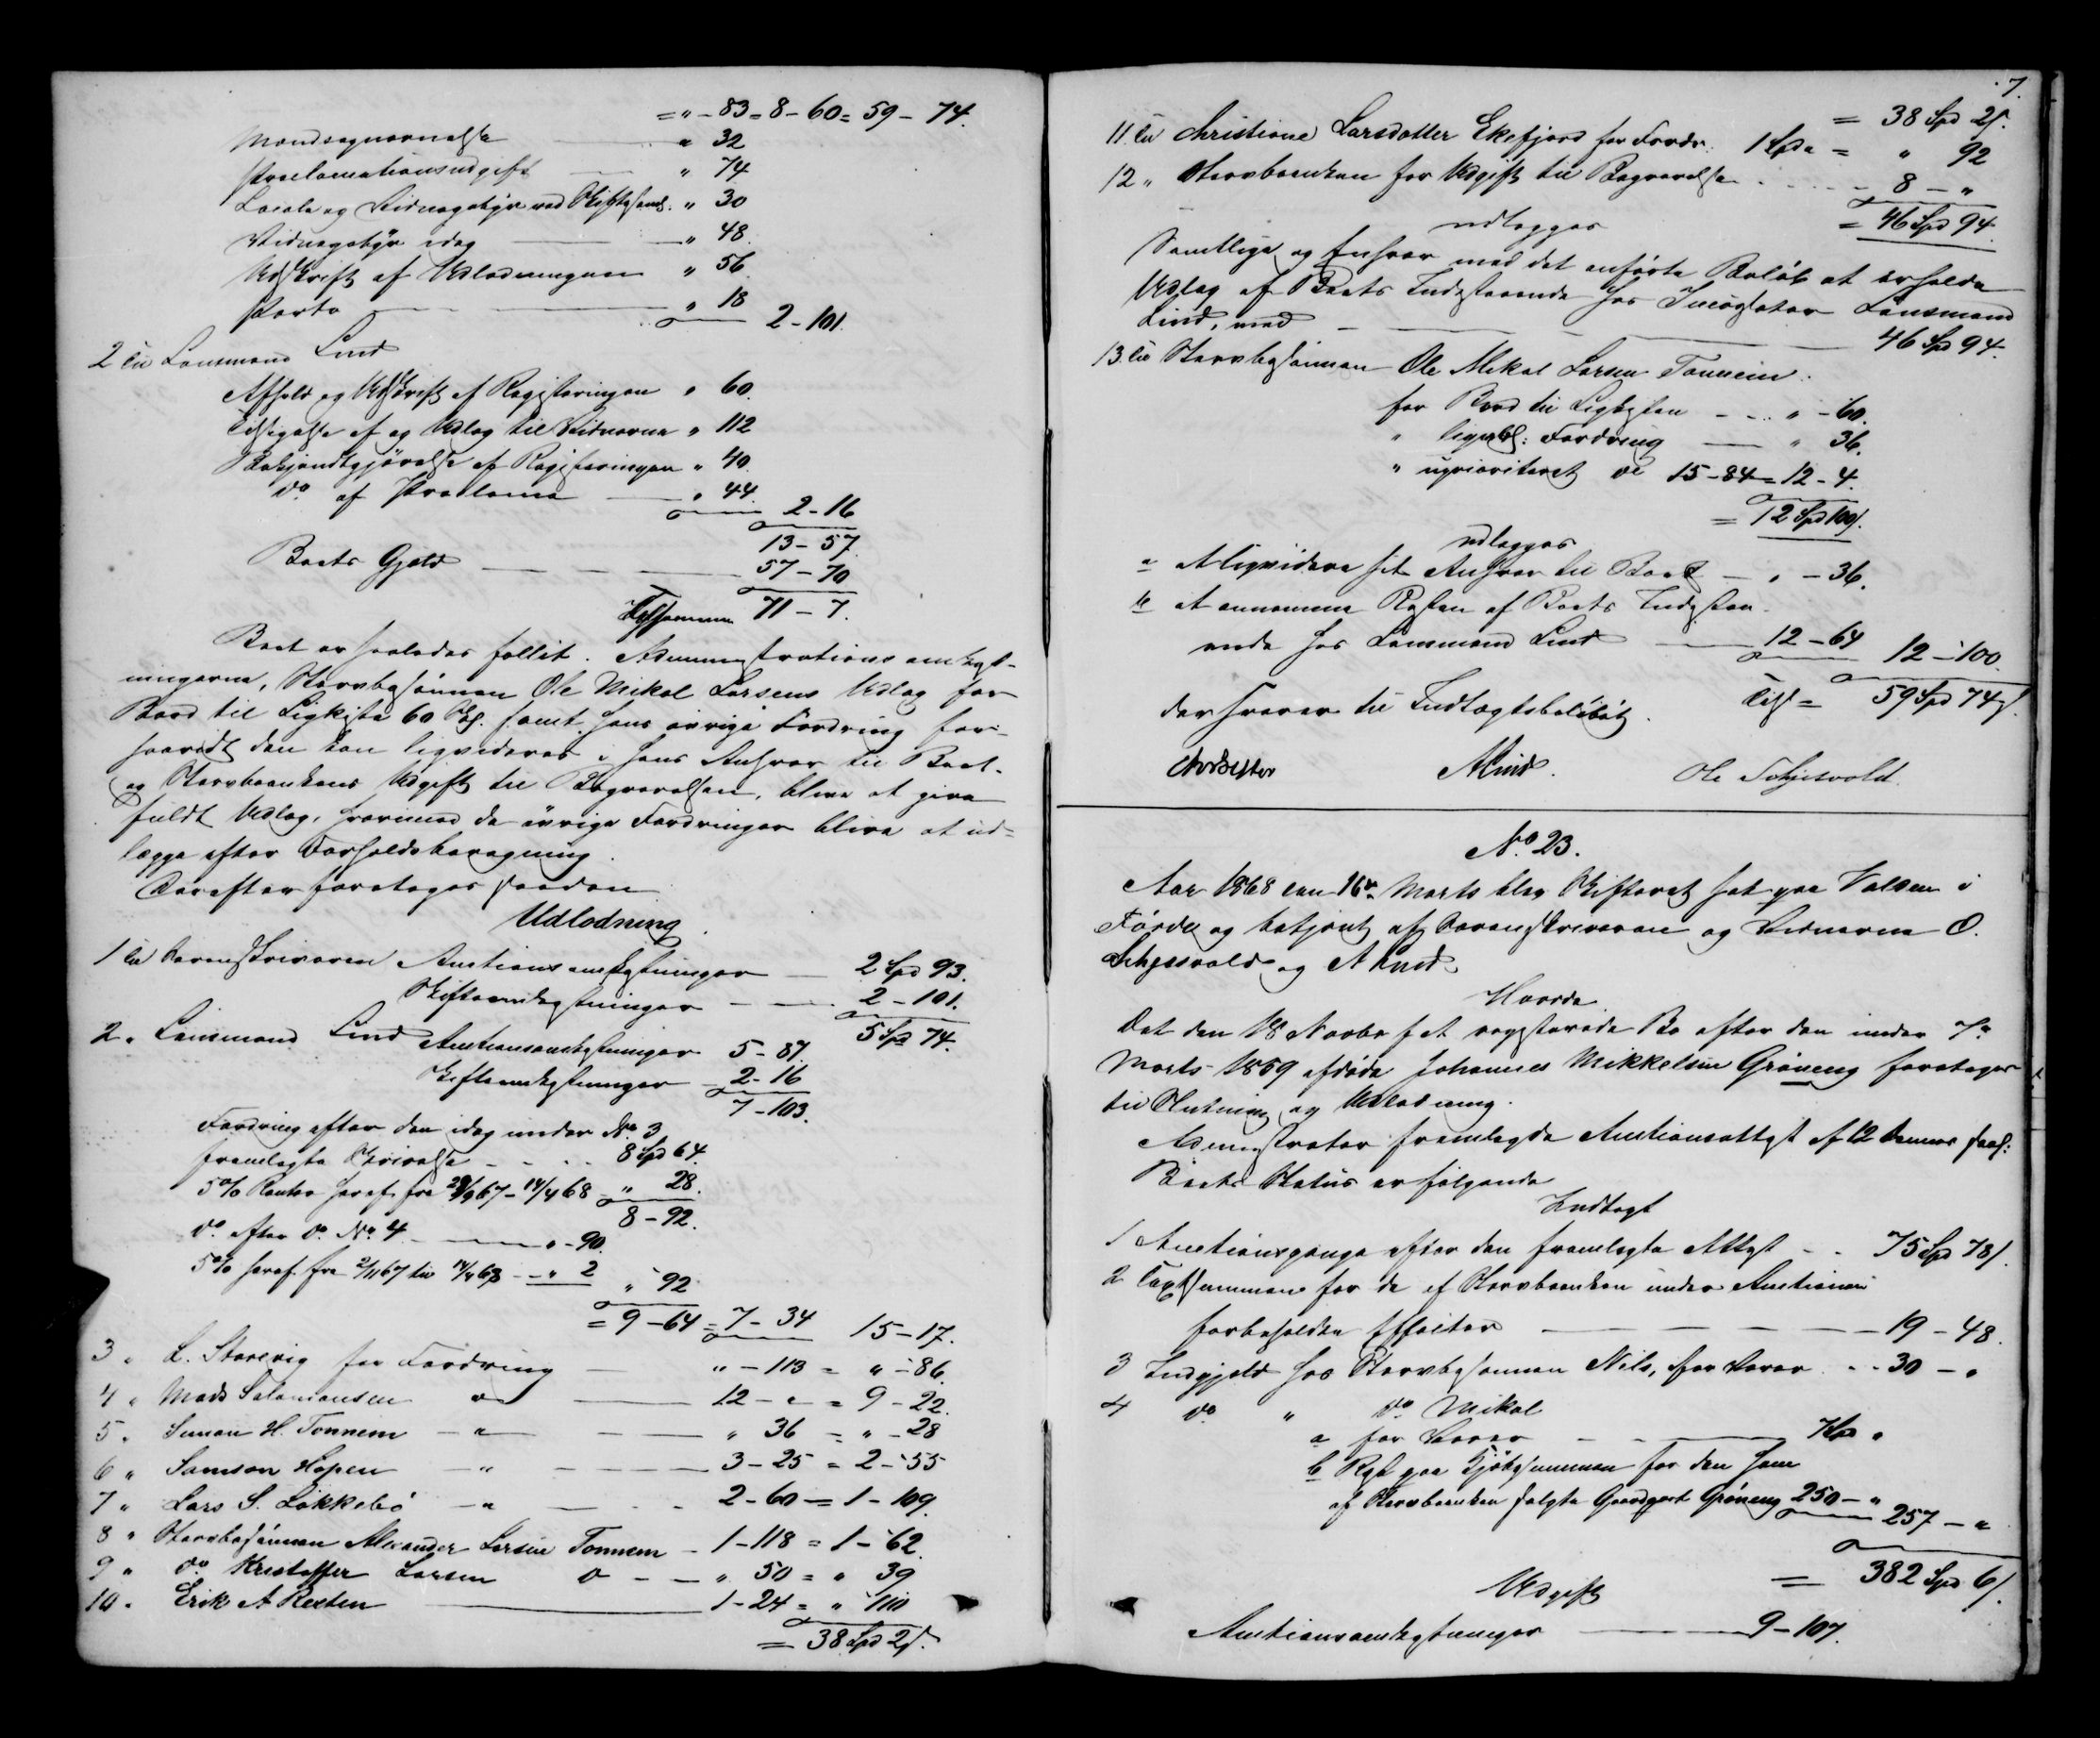 = " - 83 = 8 - 60 = 59 - 74.
Mandsopnævnelse " 32
Proclamationsudgift " 74
Locale og Vidnegebyr ved Skiftesaml. " 30
Vidnegebyr idag " 48
Udskrift af Udlodningen " 56
Porto " 18 2 - 101.
2 til Lensmand Lind
Afhold og Udskrift af Registeringen " 60.
Tilsigelse af og Udlæg til Vidnerne " 112
Bekjendtgjørelse af Registeringen " 40.
do af Proclama " 44. 2 - 16
13 - 57.
Boets Gjeld 57 - 70
Tilsammen 71 - 7.
Boet er saaledes fallit. Administrationsomkost-
ningerne, Stervbosønnen Ole Mikal Larsens Udlæg for
Bord til Ligkiste 60 Sk. samt hans øvrige Fordring for-
saavidt den kan ligvideres i hans Ansvar til Boet.
og Stervboenkens Udgift til Begravelsen, bliver at give
fuldt Udlæg, hvorimod de øvrige Fordringer blive at ud-
lægge efter Forholdsberegning.
Derefter foretoges saadan
Udlodning.
1 til Sorenskriveren Auctionsomkostninger 2 Spd 93.
Skifteomkostninger 2 - 101.
5 Spd 74.
2 " Lensmand Lind Auctionsomkostninger 5 - 87.
Skifteomkostninger 2 - 16
7 - 103.
Fordring efter den idag under No 3
fremlagte Skrivelse 8 Spd 64.
5% Renter heraf fra 29/9 67 - 14/4 68 " 28.
8 - 92.
do efter do No 4. " - 90.
5% heraf fra 2/11 67 til 14/4 68 " 2
" 92
= 9 - 64 = 7 - 34 15 - 17.
3 " L. Storevig for Fordring " - 113 = " - 86.
4 " Mads Salamonsen " 12 - " = 9 - 22.
5 " Simon H. Tonnem " " 36 = " - 28
6 " Samson Hopen " 3 - 25 = 2 - 55
7 " Lars S. Løkkebø " 2 - 60 = 1 - 109.
8 " Stervbosønnen Alexander Larsen Tonnem 1 - 118 = 1 - 62.
9 " do Kristoffer Larsen " " 50 = " 39
10 " Erik A Rexten 1 - 24 = " 110
= 38 Spd 2 s.
7.
= 38 Spd 2 s.
11. til Christiane Larsdatter Ekefjord for Fordr. 1 Spd " = " 92
12 " Stervboenken for Udgift til Begravelse 8 - "
= 46 Spd 94.
udlægges
Samtlige og Enhver med det anførte Beløb at erholde
Udlæg af Boets Indestaaende hos Incassator Lensmand
Lind, med 46 Spd 94.
13. til Stervbosønnen Ole Mikal Larsen Tonnem.
for Bord til Ligkisten " - 60.
" ligvibl: Fordring " 36.
" uprioriteret do 15 - 84 = 12 - 4.
= 12 Spd 100 s.
udlægges
a At ligvidere sit Ansvar til Boet " - 36.
b at annamme Resten af Boets Indestaa-
ende hos Lensmand Lind 12 - 64 12 - 100.
der svarer til Indtægtsbeløbet. Tils = 59 Spd 74 s.
A Lind. Ole Schjesvold.
No. 23.
Aar 1868 den 16de Marts blev Skifteret sat paa Valsen i
Førde og betjent af Sorenskriveren og Vidnerne O.
Schjesvold og A Lind.
Hvorda
Det den 18 Novbr f A registerede Bo efter den under 7de
Marts 1859 afdøde Johannes Mikkelsen Grøneng foretoges
til Slutning og Udlodning.
Administrator fremlagde Auctionsattest af 12 dennes saal:
Boets Status er følgende
Indtægt
1 Auctionspenge efter den fremlagte Attest 75 Spd 78 s.
2 Taxtsummen for de af Stervboenken under Auctionen
forbeholdne Effecter 19 - 48.
3 Indgjeld hos Stervbosønnen Nils, for Varer 30 - "
4 do " do Mikal
a for Varer 7 Spd "
b Rest paa Kjøbesummen for den ham
af Stervboenken solgte Gaardpart Grøneng 250 - "
257 - "
= 382 Spd 6 s.
Udgift
Auctionsomkostninger 9 - 107.